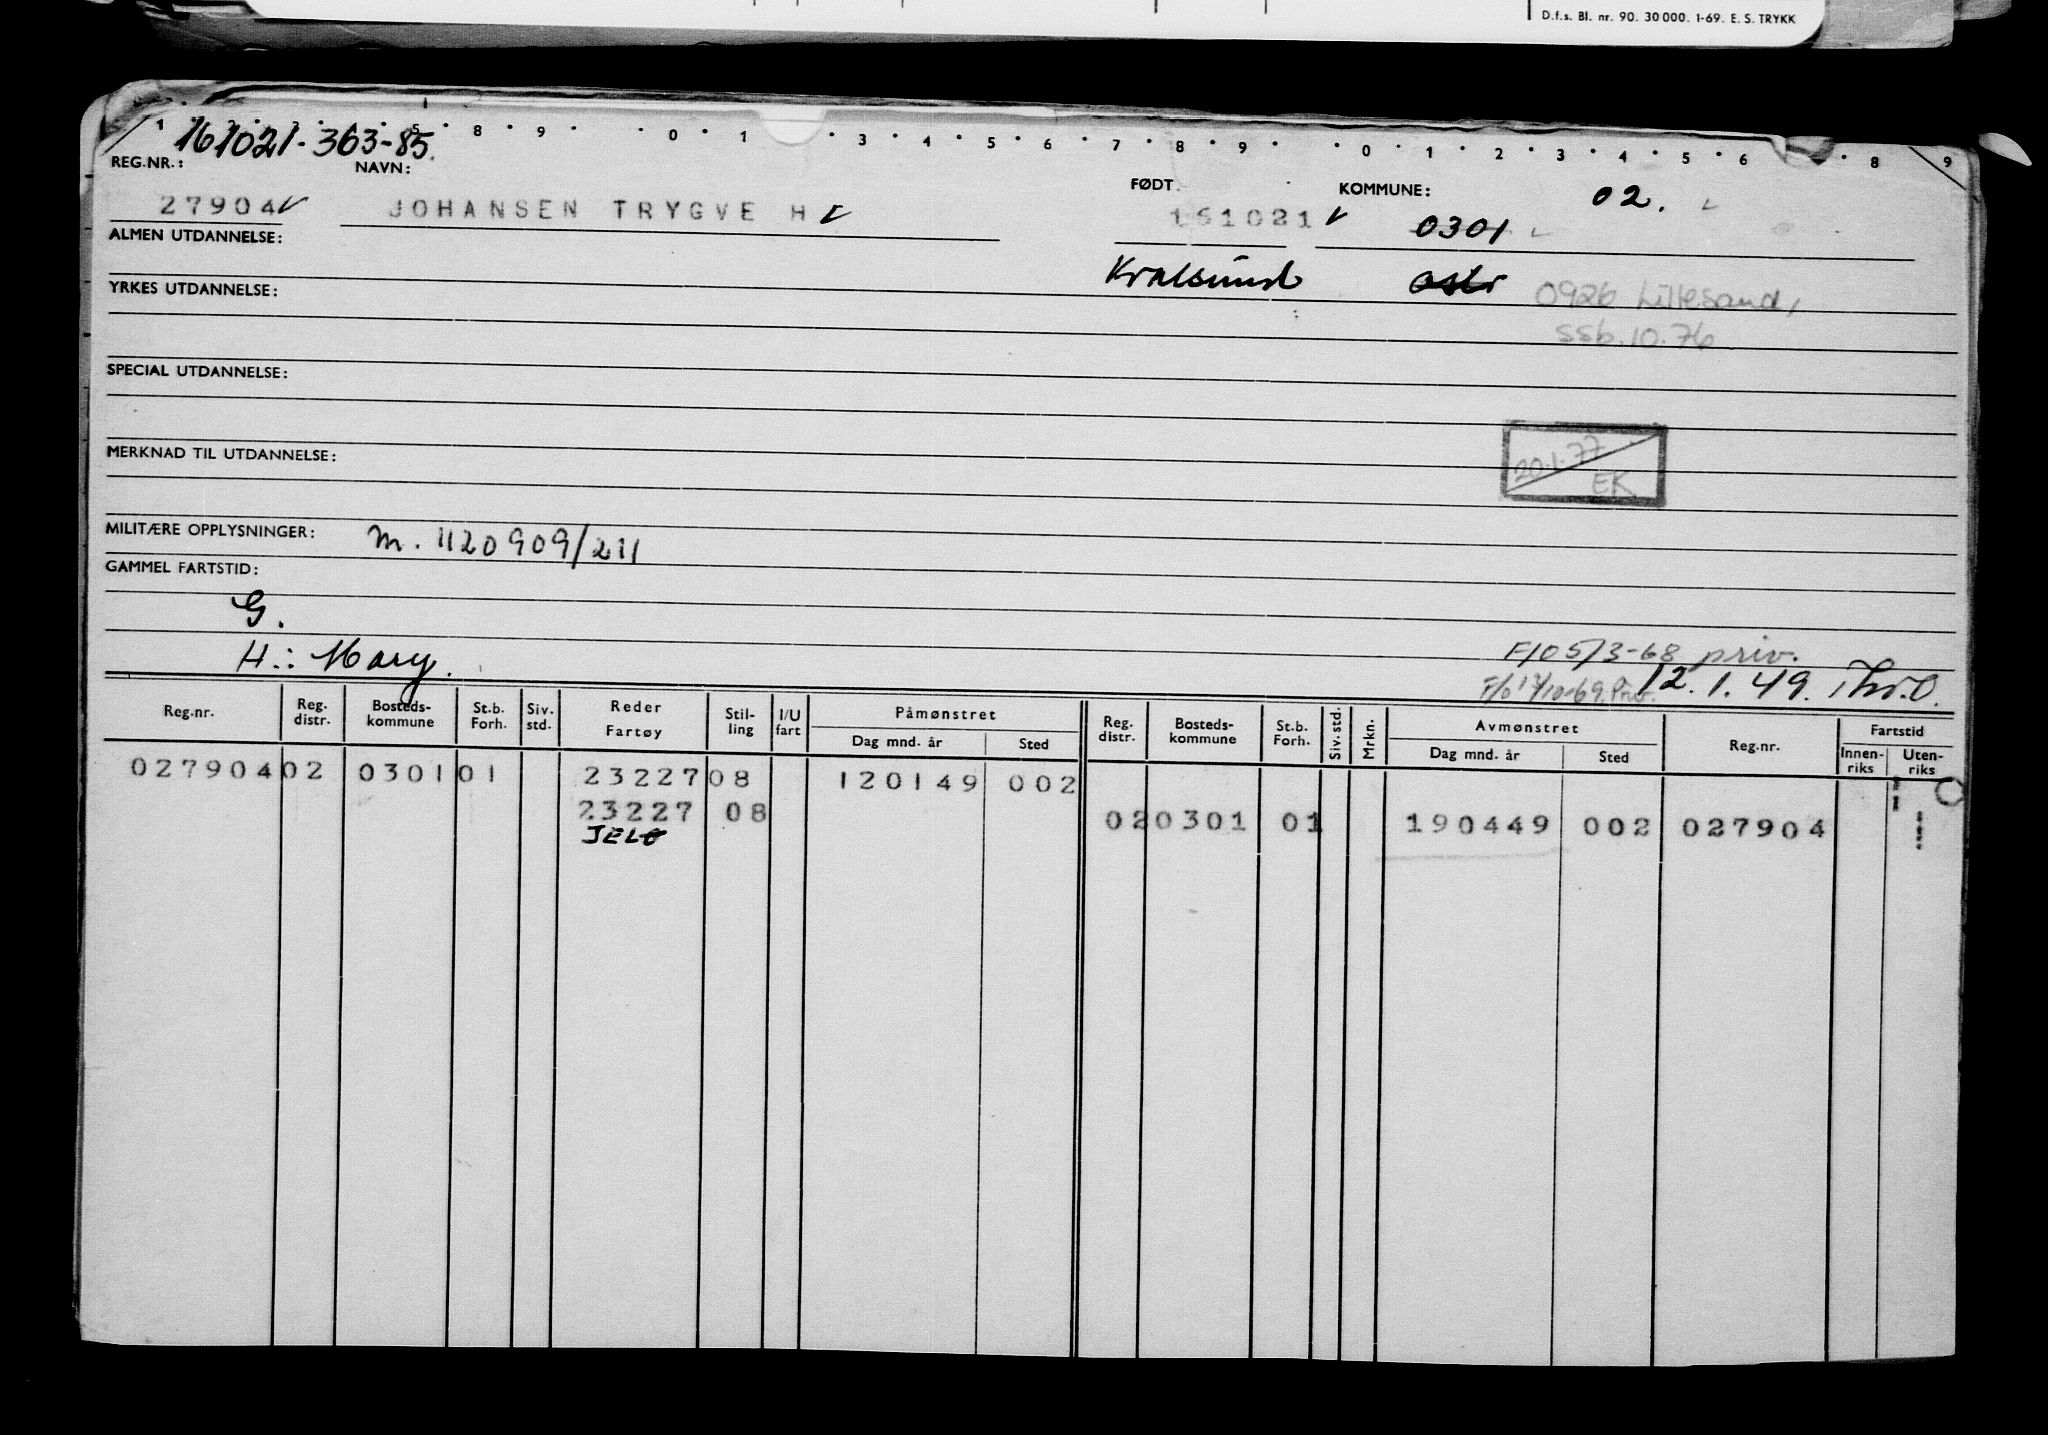 D.f.s. Bl. nr. 90. 30000. 1-69. E. S. TRYKK
161021-363-85.
1 5 8 9 0 1 3 4 5 6 7 8 9 0 1 2 3 4 5 6 8 9
REG.NR.: NAVN: FØDT KOMMUNE: 02.
27904 JOHANSEN TRYGVE H 161021 0301
ALMEN UTDANNELSE:
Kvalsund Oslo 0926 Lillesand,
YRKES UTDANNELSE:
ssb.10.76
SPECIAL UTDANNELSE:
20.1.77
MERKNAD TIL UTDANNELSE:
EK
MILITÆRE OPPLYSNINGER: M. 1120909/211
GAMMEL FARTSTID:
G.
H.: Mary. F/O 5/3-68 priv.
F/O 13/10-69. Priv. 12.1.49. Thr.O.
Reg.nr. Reg. distr. Bosteds-kommune St.b. Forh. Siv. std. Reder Fartøy Stil-ling I/U fart Påmønstret Dag mnd. år Sted Reg. distr. Bosteds-kommune St.b. Forh. Siv. std. Mrkn. Avmønstret Dag mnd. år Sted Reg.nr. Fartstid Innen-riks Uten-riks
027904 02 0301 01 23227 08 120149 002
23227 08 02 0301 01 190449 002 027904
JELØ